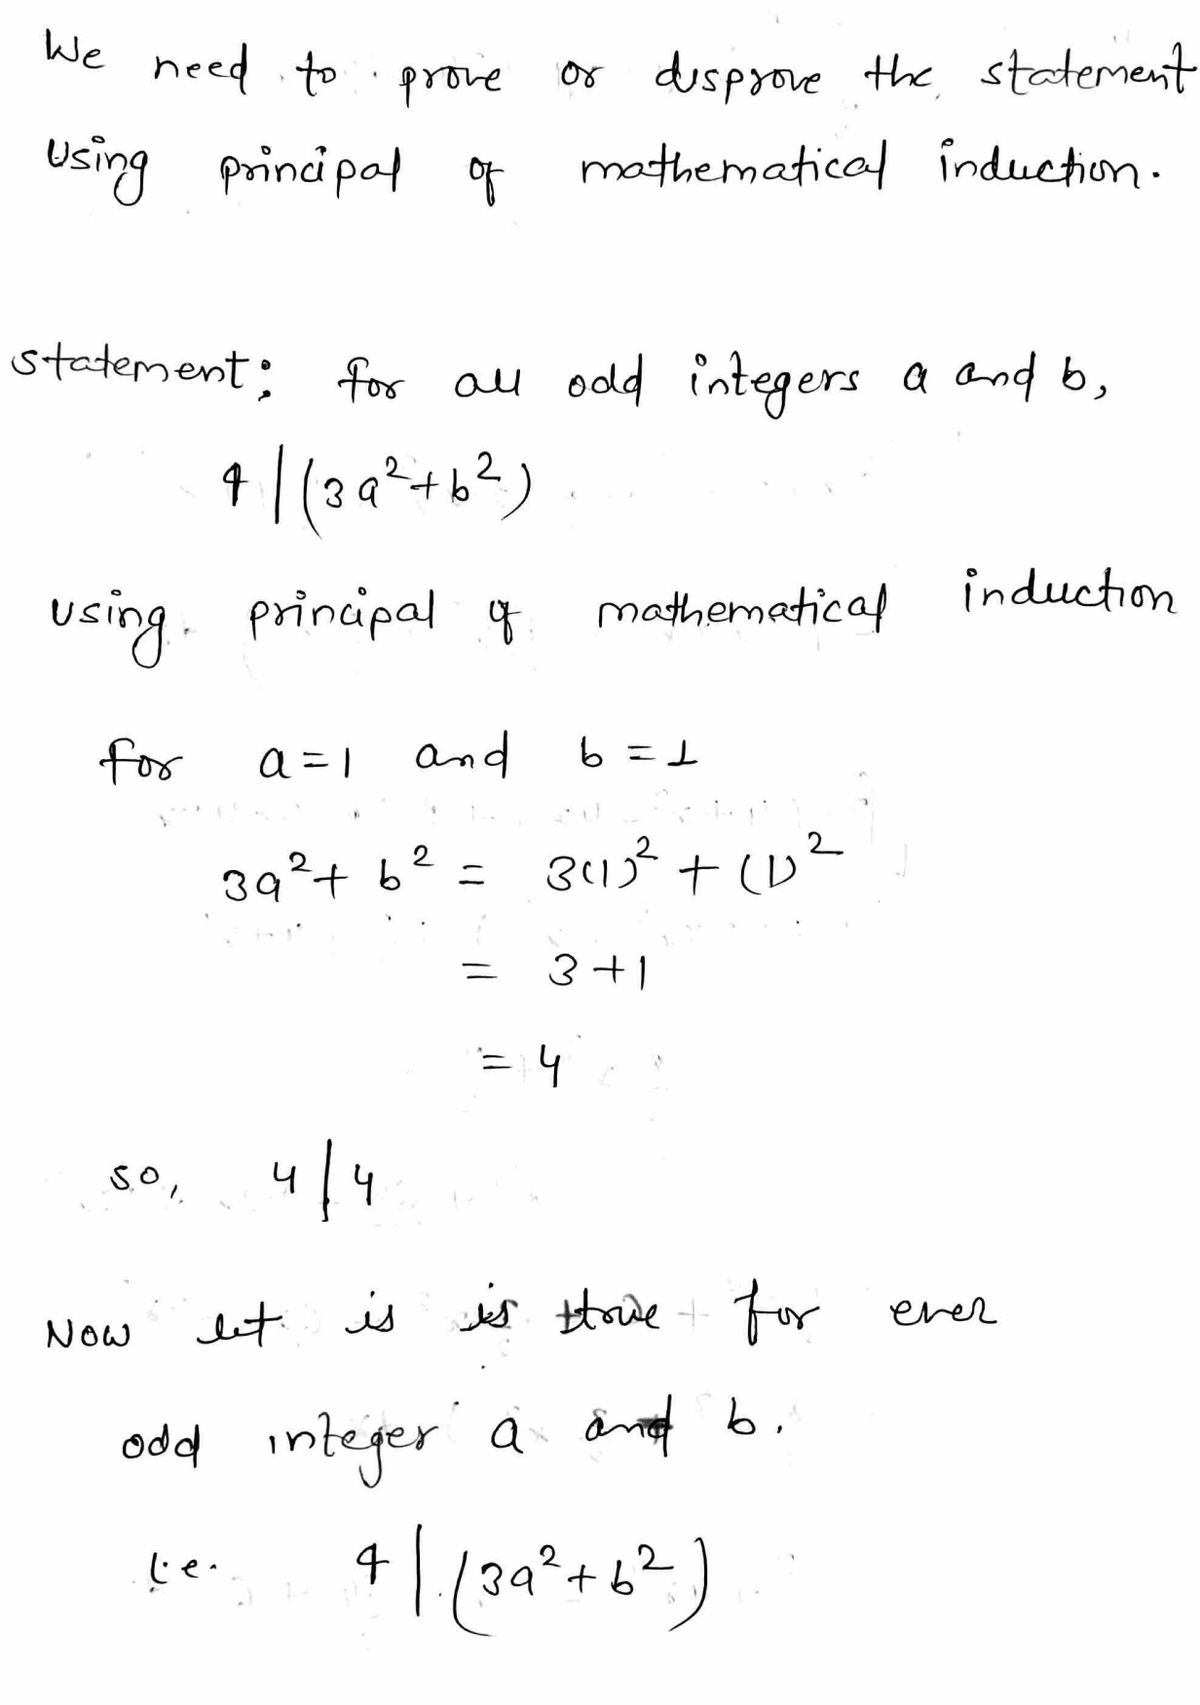 We need to prove or disprove the statement
Using principal of mathematical induction.
statement: for all odd integers a and b,
4 | (3a²+b²)
using principal of mathematical induction
for a=1 and b=1
3a²+ b² = 3(1)² + (1)²
= 3+1
= 4
so, 4 | 4
Now let is is true for ever
odd integer a and b.
i.e. 4 | (3a²+b²)